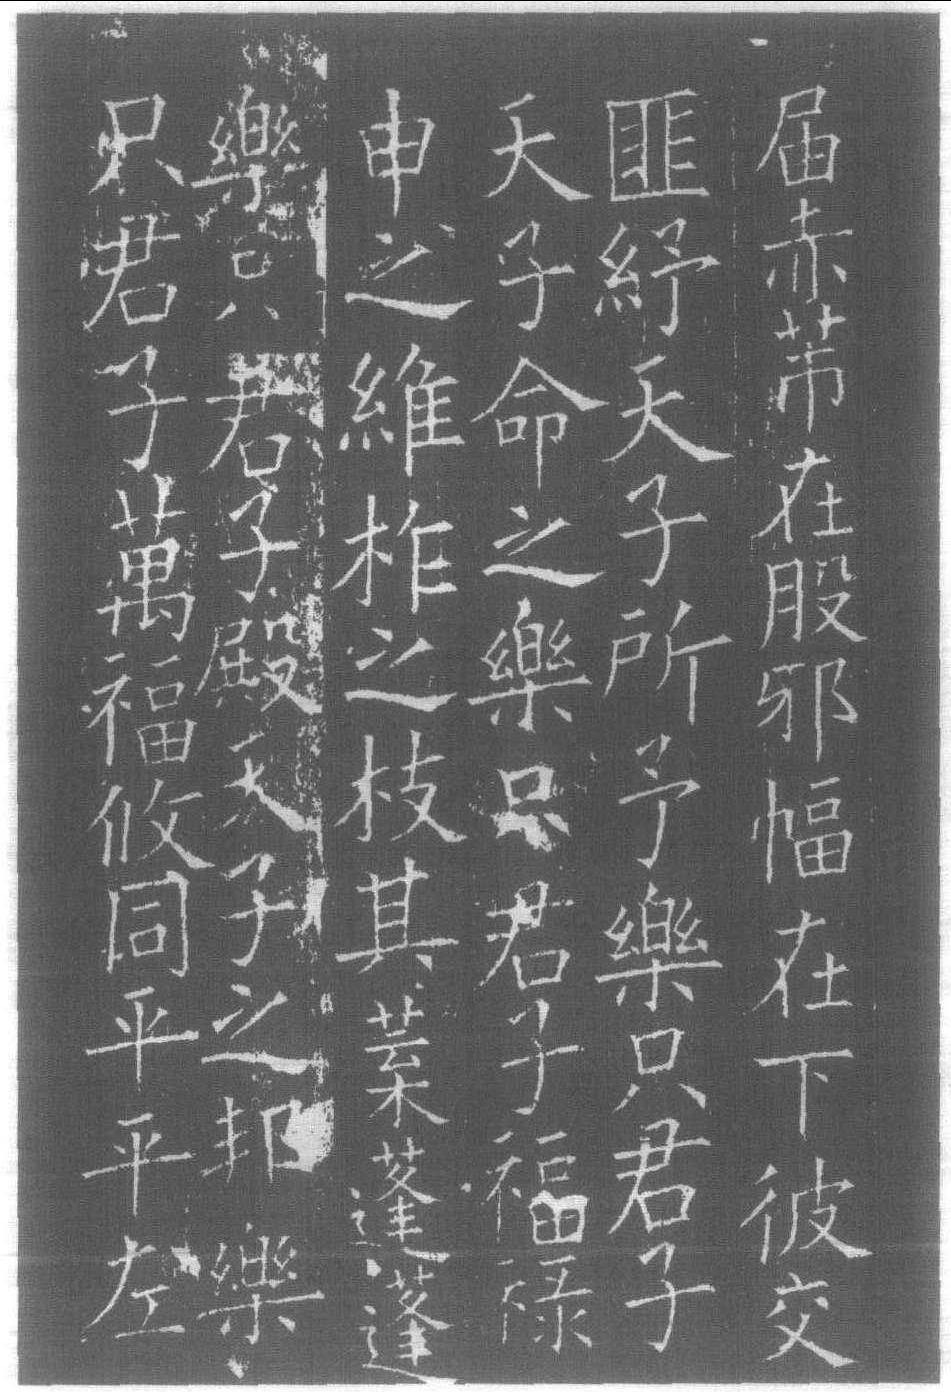 届赤芾在股邪幅在下彼交
匪紓天子所予樂只君子
天子命之樂只君子福禄
申之維柞之枝其葉蓬蓬
樂只君子殿天子之邦樂
只君子萬福攸同平平左